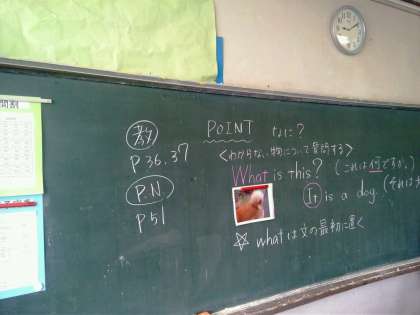 間割
教
P36.37
P.N
P51
POINT なに？
＜わからない物について質問する＞
What is this? (これは何ですか。
It is a dog. (それは
☆ whatは文の最初に置く